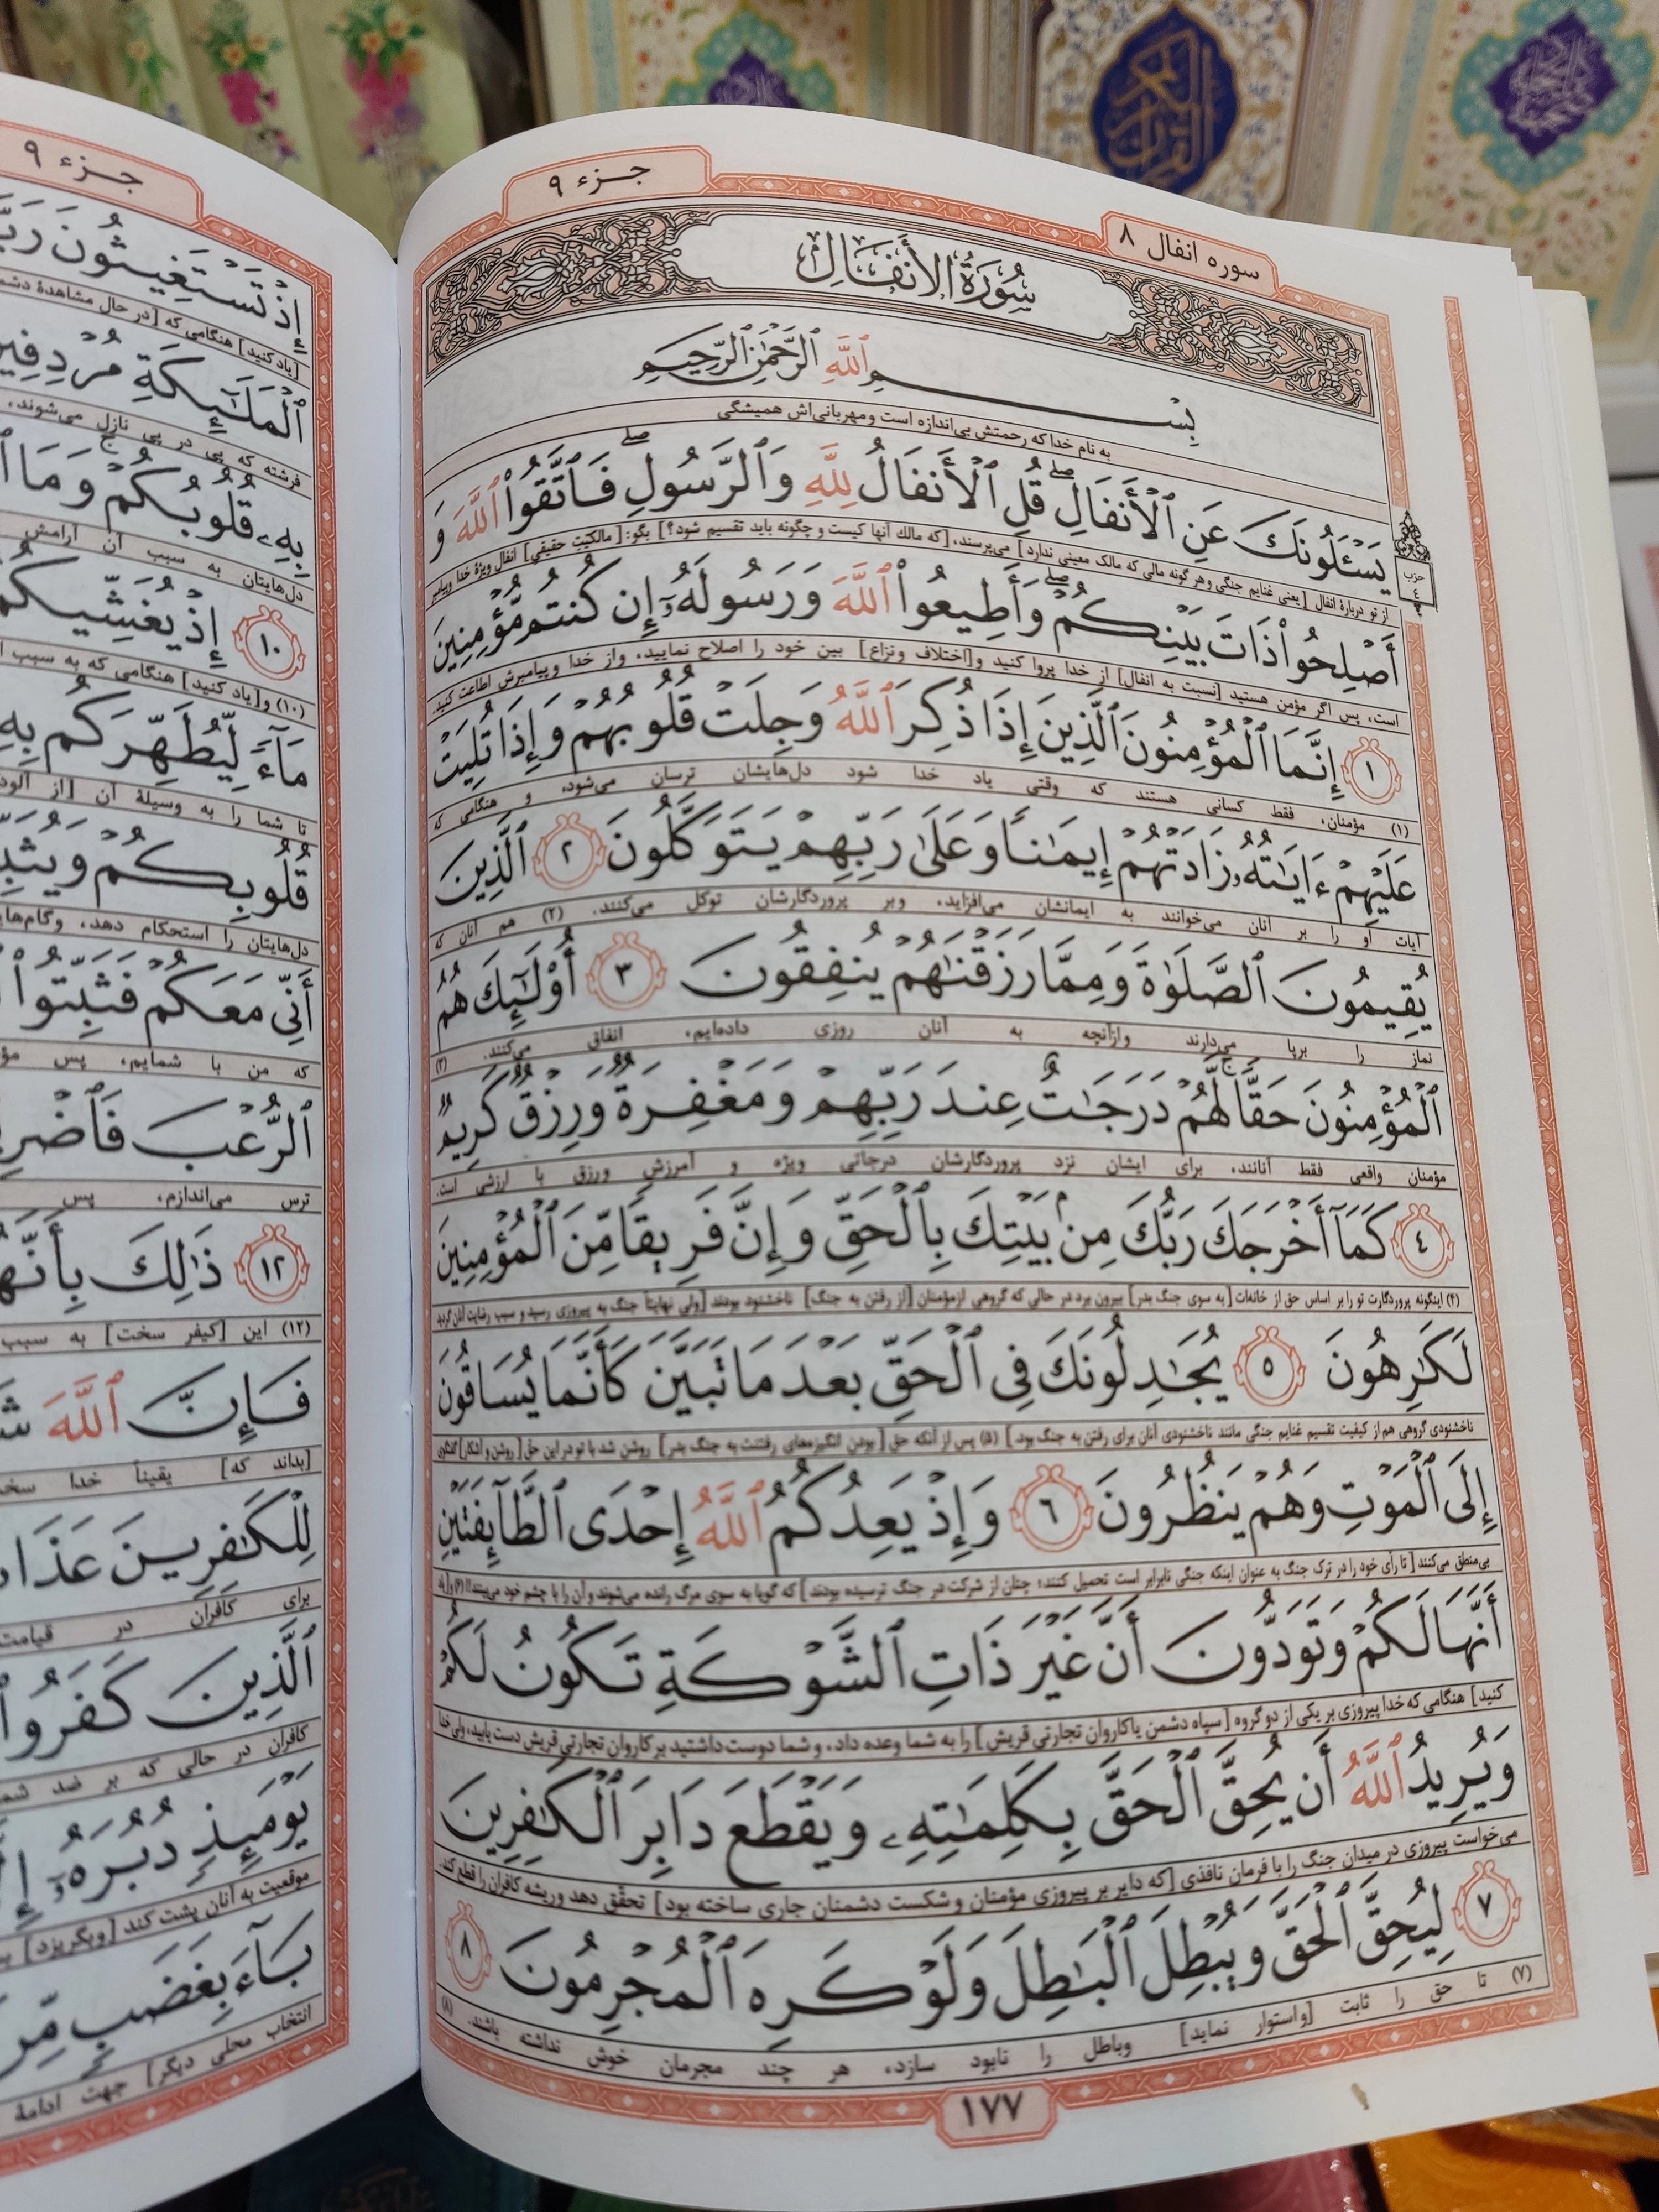 جزء ۹
سوره انفال ۸
سُورَةُ الأَنفَال
بِسْمِ ٱللَّهِ ٱلرَّحْمَٰنِ ٱلرَّحِيمِ
به نام خدا که رحمتش بی‌اندازه است و مهربانی‌اش همیشگی
يَسْـَٔلُونَكَ عَنِ ٱلْأَنفَالِ ۖ قُلِ ٱلْأَنفَالُ لِلَّهِ وَٱلرَّسُولِ ۖ فَٱتَّقُوا۟ ٱللَّهَ وَ
حزب
٤
از تو دربارهٔ انفال [یعنی غنایم جنگی و هر گونه مالی که مالک معینی ندارد] می‌پرسند، [که مالک آنها کیست و چگونه باید تقسیم شود؟] بگو: [مالکیّتِ حقیقیِ] انفال ویژهٔ خدا و پیامبر
أَصْلِحُوا۟ ذَاتَ بَيْنِكُمْ ۖ وَأَطِيعُوا۟ ٱللَّهَ وَرَسُولَهُۥٓ إِن كُنتُم مُّؤْمِنِينَ
است، پس اگر مؤمن هستید [نسبت به انفال] از خدا پروا کنید و [اختلاف و نزاع] بین خود را اصلاح نمایید، و از خدا و پیامبرش اطاعت کنید.
۱ إِنَّمَا ٱلْمُؤْمِنُونَ ٱلَّذِينَ إِذَا ذُكِرَ ٱللَّهُ وَجِلَتْ قُلُوبُهُمْ وَإِذَا تُلِيَتْ
(۱) مؤمنان، فقط کسانی هستند که وقتی یاد خدا شود دل‌هایشان ترسان می‌شود، و هنگامی که
عَلَيْهِمْ ءَايَـٰتُهُۥ زَادَتْهُمْ إِيمَـٰنًا وَعَلَىٰ رَبِّهِمْ يَتَوَكَّلُونَ ۲ ٱلَّذِينَ
آیات او را بر آنان می‌خوانند به ایمانشان می‌افزاید، و بر پروردگارشان توکل می‌کنند. (۲) هم آنان که
يُقِيمُونَ ٱلصَّلَوٰةَ وَمِمَّا رَزَقْنَـٰهُمْ يُنفِقُونَ ۳ أُو۟لَـٰٓئِكَ هُمُ
نماز را برپا می‌دارند و ازآنچه به آنان روزی داده‌ایم، انفاق می‌کنند. (۳)
ٱلْمُؤْمِنُونَ حَقًّا ۚ لَّهُمْ دَرَجَـٰتٌ عِندَ رَبِّهِمْ وَمَغْفِرَةٌ وَرِزْقٌ كَرِيمٌ
مؤمنان واقعی فقط آنانند، برای ایشان نزد پروردگارشان درجاتی ویژه و آمرزش و رزق با ارزشی است.
٤ كَمَآ أَخْرَجَكَ رَبُّكَ مِنۢ بَيْتِكَ بِٱلْحَقِّ وَإِنَّ فَرِيقًا مِّنَ ٱلْمُؤْمِنِينَ
(۴) اینگونه پروردگارت تو را بر اساس حق از خانه‌ات [به سوی جنگ بدر] بیرون برد در حالی که گروهی ازمؤمنان [از رفتن به جنگ] ناخشنود بودند [ولی نهایتاً جنگ به پیروزی رسید و سبب رضایت آنان گردید
لَكَـٰرِهُونَ ٥ يُجَـٰدِلُونَكَ فِى ٱلْحَقِّ بَعْدَ مَا تَبَيَّنَ كَأَنَّمَا يُسَاقُونَ
ناخشنودی گروهی هم از کیفیت تقسیم غنایم جنگی مانند ناخشنودی آنان برای رفتن به جنگ بود.] (۵) پس از آنکه حق [بودن انگیزه‌های رفتنت به جنگ بدر] روشن شد با تو در این حقِّ [روشن و آشکار] گفتگوی
إِلَى ٱلْمَوْتِ وَهُمْ يَنظُرُونَ ٦ وَإِذْ يَعِدُكُمُ ٱللَّهُ إِحْدَى ٱلطَّآئِفَتَيْنِ
بی‌منطق می‌کنند [تا رأی خود را در ترک جنگ به عنوان اینکه جنگی نابرابر است تحمیل کنند؛ چنان از شرکت در جنگ ترسیده بودند] که گویا به سوی مرگ رانده می‌شوند و آن را با چشم خود می‌بینند!! (۶) و [یاد
أَنَّهَا لَكُمْ وَتَوَدُّونَ أَنَّ غَيْرَ ذَاتِ ٱلشَّوْكَةِ تَكُونُ لَكُمْ
کنید] هنگامی که خدا پیروزی بر یکی از دو گروه [سپاه دشمن یا کاروان تجارتی قریش] را به شما وعده داد، و شما دوست داشتید بر کاروان تجارتی قریش دست یابید، ولی خدا
وَيُرِيدُ ٱللَّهُ أَن يُحِقَّ ٱلْحَقَّ بِكَلِمَـٰتِهِۦ وَيَقْطَعَ دَابِرَ ٱلْكَـٰفِرِينَ
می‌خواست پیروزی در میدان جنگ را با فرمان نافذی [که دایر بر پیروزی مؤمنان و شکست دشمنان جاری ساخته بود] تحقّق دهد و ریشه کافران را قطع کند.
۷ لِيُحِقَّ ٱلْحَقَّ وَيُبْطِلَ ٱلْبَـٰطِلَ وَلَوْ كَرِهَ ٱلْمُجْرِمُونَ ۸
(۷) تا حق را ثابت [و استوار نماید] و باطل را نابود سازد، هر چند مجرمان خوش نداشته باشند. (۸)
۱۷۷
جزء ۹
إِذْ تَسْتَغِيثُونَ
[یاد کنید] هنگامی که [در حال مشاهدهٔ
ٱلْمَلَـٰٓئِكَةِ مُرْدِفِينَ
فرشته که پی در پی نازل می‌شوند،
بِهِۦ قُلُوبُكُمْ ۚ وَمَا
دل‌هایتان به سبب آن آرامش
۱۰ إِذْ يُغَشِّيكُمُ
(۱۰) و [یاد کنید] هنگامی که به سبب
مَآءً لِّيُطَهِّرَكُم بِهِۦ
تا شما را به وسیلهٔ آن [از
قُلُوبِكُمْ وَيُثَبِّتَ
دل‌هایتان را استحکام دهد، و
أَنِّى مَعَكُمْ فَثَبِّتُوا۟
که من با شمایم، پس
ٱلرُّعْبَ
ترس می‌اندازم، پس
۱۲ ذَٰلِكَ بِأَنَّهُمْ
(۱۲) این [کیفر سخت] به سبب
فَإِنَّ ٱللَّهَ
[بداند که] یقیناً خدا
لِلْكَـٰفِرِينَ
برای کافران در قیامت
ٱلَّذِينَ كَفَرُوا۟
کافران در حالی که بر ضد
يَوْمَئِذٍ دُبُرَهُۥٓ
موقعیت به آنان پشت کند [و بگریزد]
بَآءَ بِغَضَبٍ
انتخاب محلی دیگر] جهت ادامهٔ
القرآن الكريم